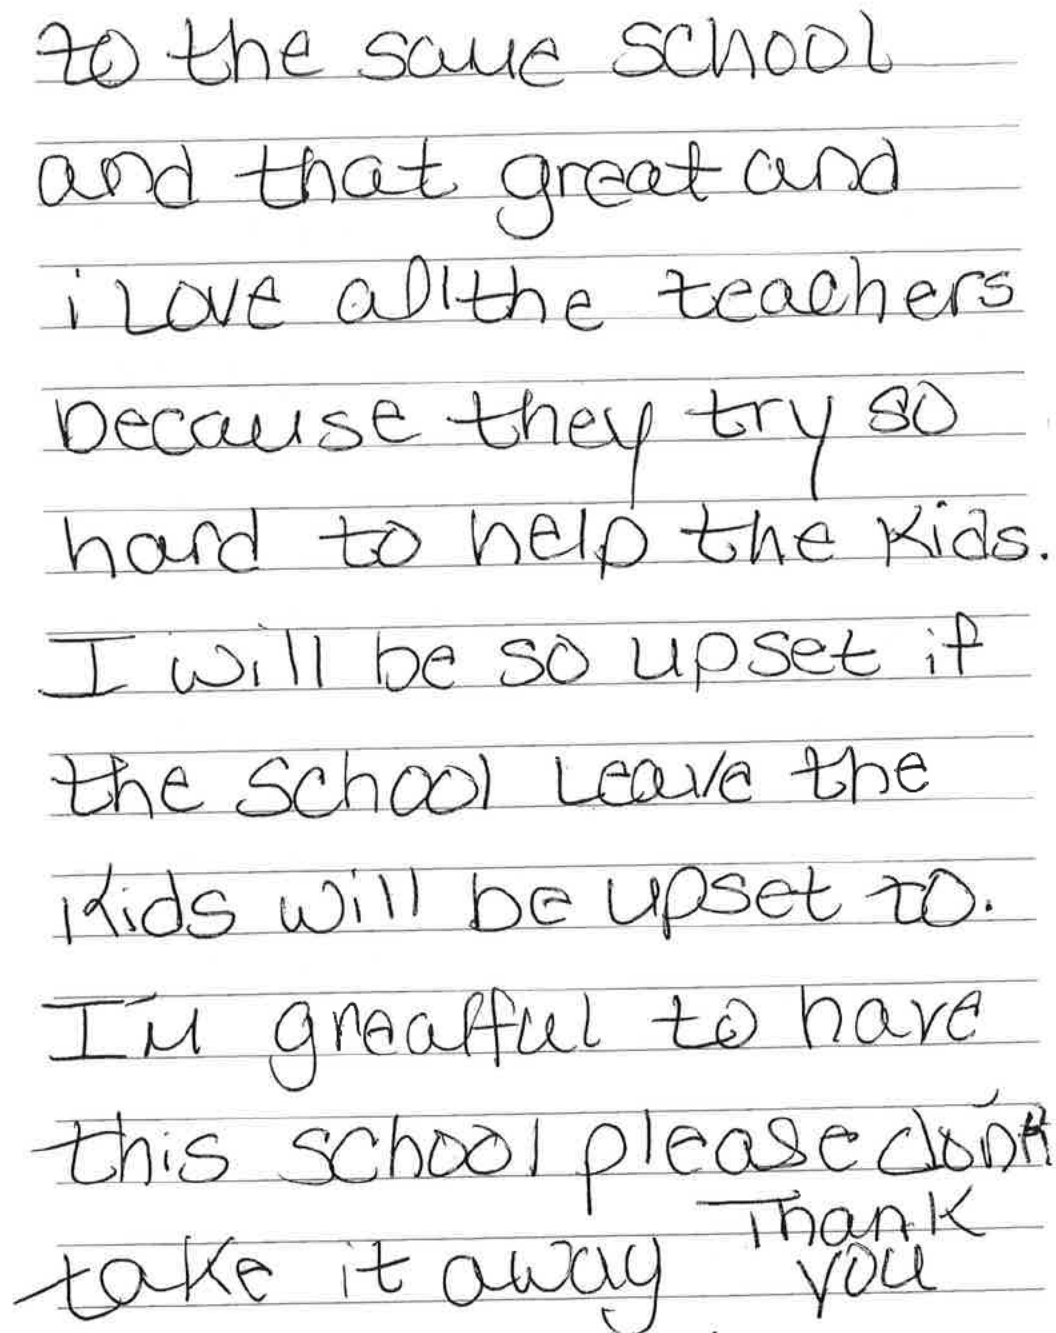 to the same school
and that great and
i Love all the teachers
because they try so
hard to help the Kids.
I will be so upset if
the school Leave the
Kids will be upset to.
I'm greatful to have
this school please don't
take it away Thank
you